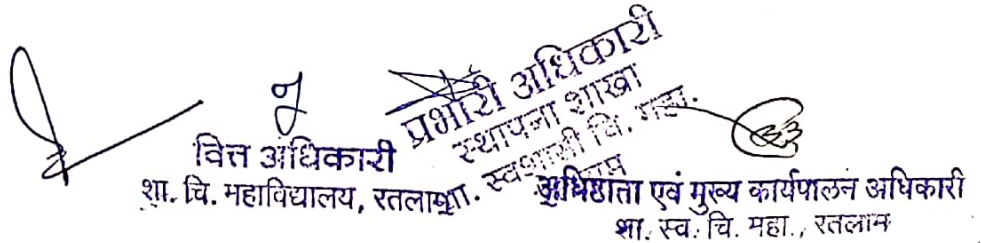 वित्त अधिकारी
शा. चि. महाविद्यालय, रतलाम
प्रभारी अधिकारी
स्थापना शाखा
शा. स्वशासी चि. महा.
अधिष्ठाता एवं मुख्य कार्यपालन अधिकारी
शा. स्व. चि. महा., रतलाम